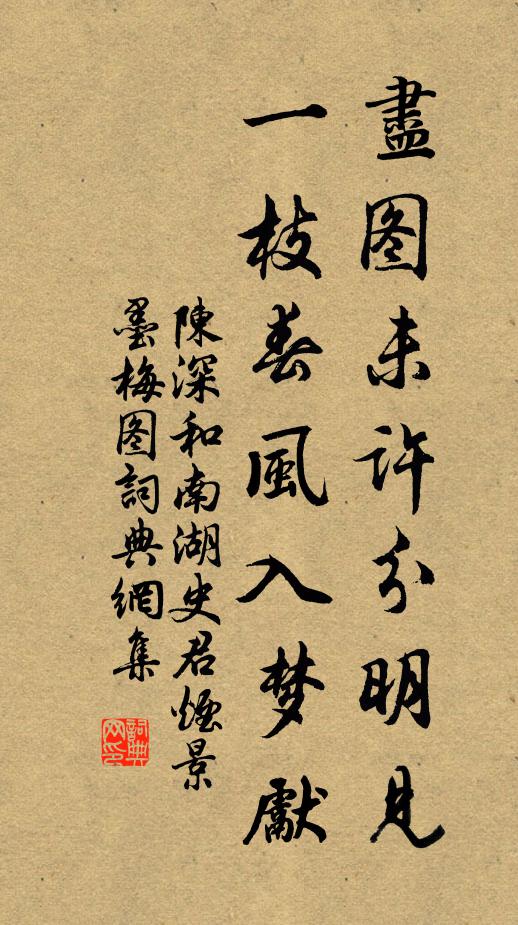 盡图未許分明見
一枝春風入梦獻
陳深和南湖史君煙景
墨梅图詞典網集
詞典网印